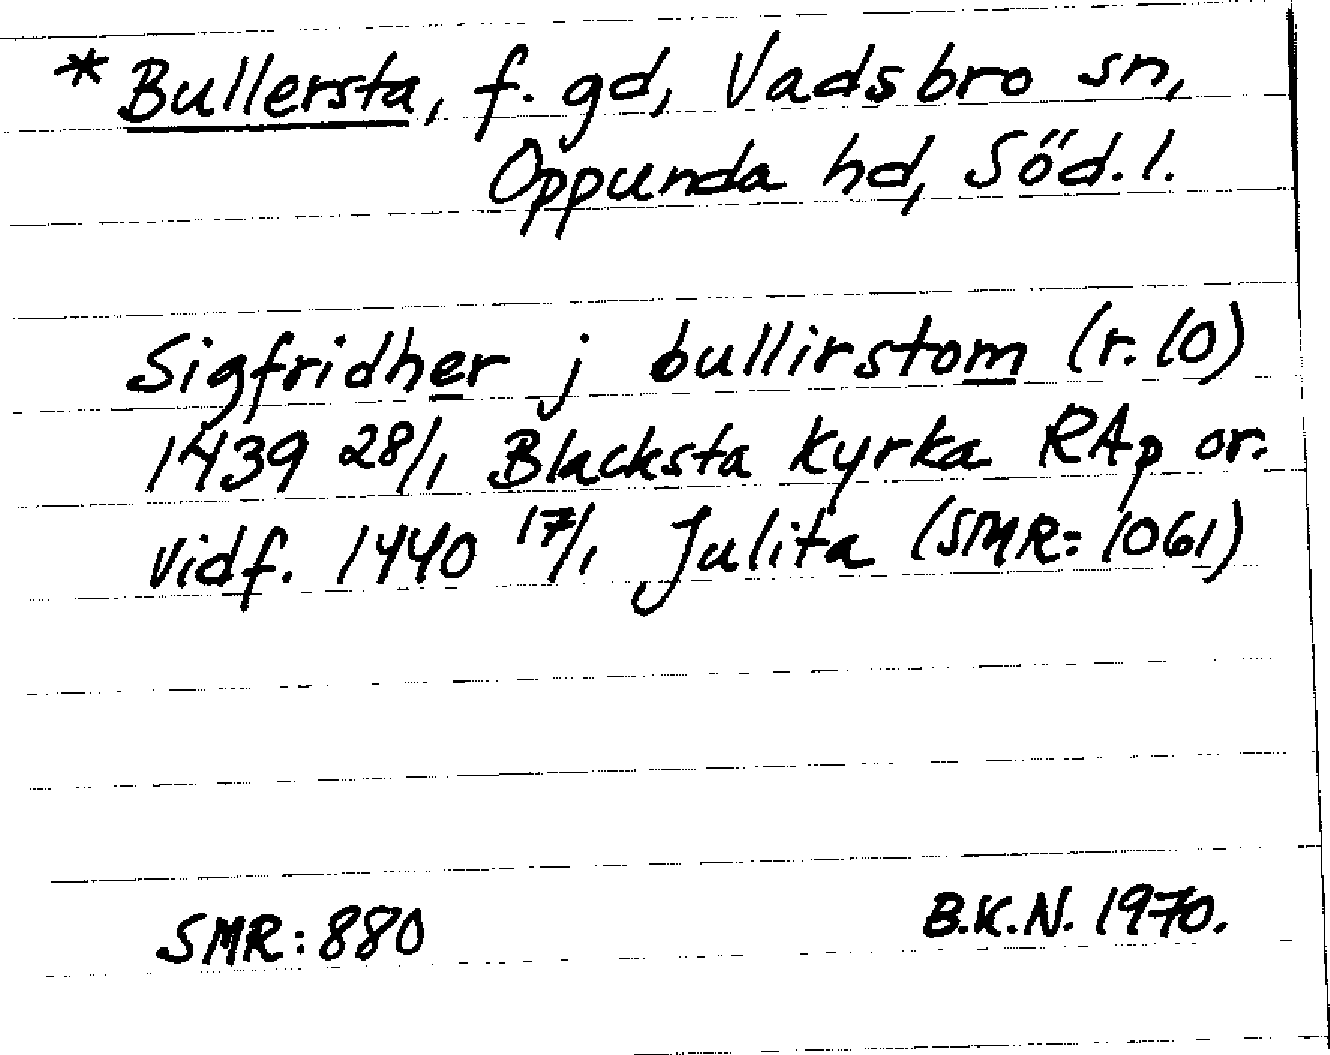 * Bullersta, f. gd, Vadsbro sn,
Oppunda hd, Söd. l.
Sigfridher j bullirstom (r. 10)
1439 28/1 Blacksta kyrka RAp or.
vidf. 1440 17/1 Julita (SMR: 1061)
SMR: 880
B.K.N. 1970.